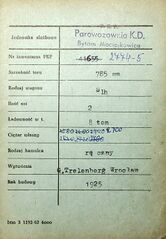 Jednostka służbowa
P.K.P.
Parowozownia K.D.
Bytom Maciejkowice
Nr inwentarza PKP 41655 2774-S
Szerokość toru 785 mm
Rodzaj wagonu
Ilość osi 2
Ładowność w t. 8 ton
Ciężar własny
Rodzaj hamulca ręczny
Wytwórnia G.Trelenberg Wrocław
Rok budowy 1925